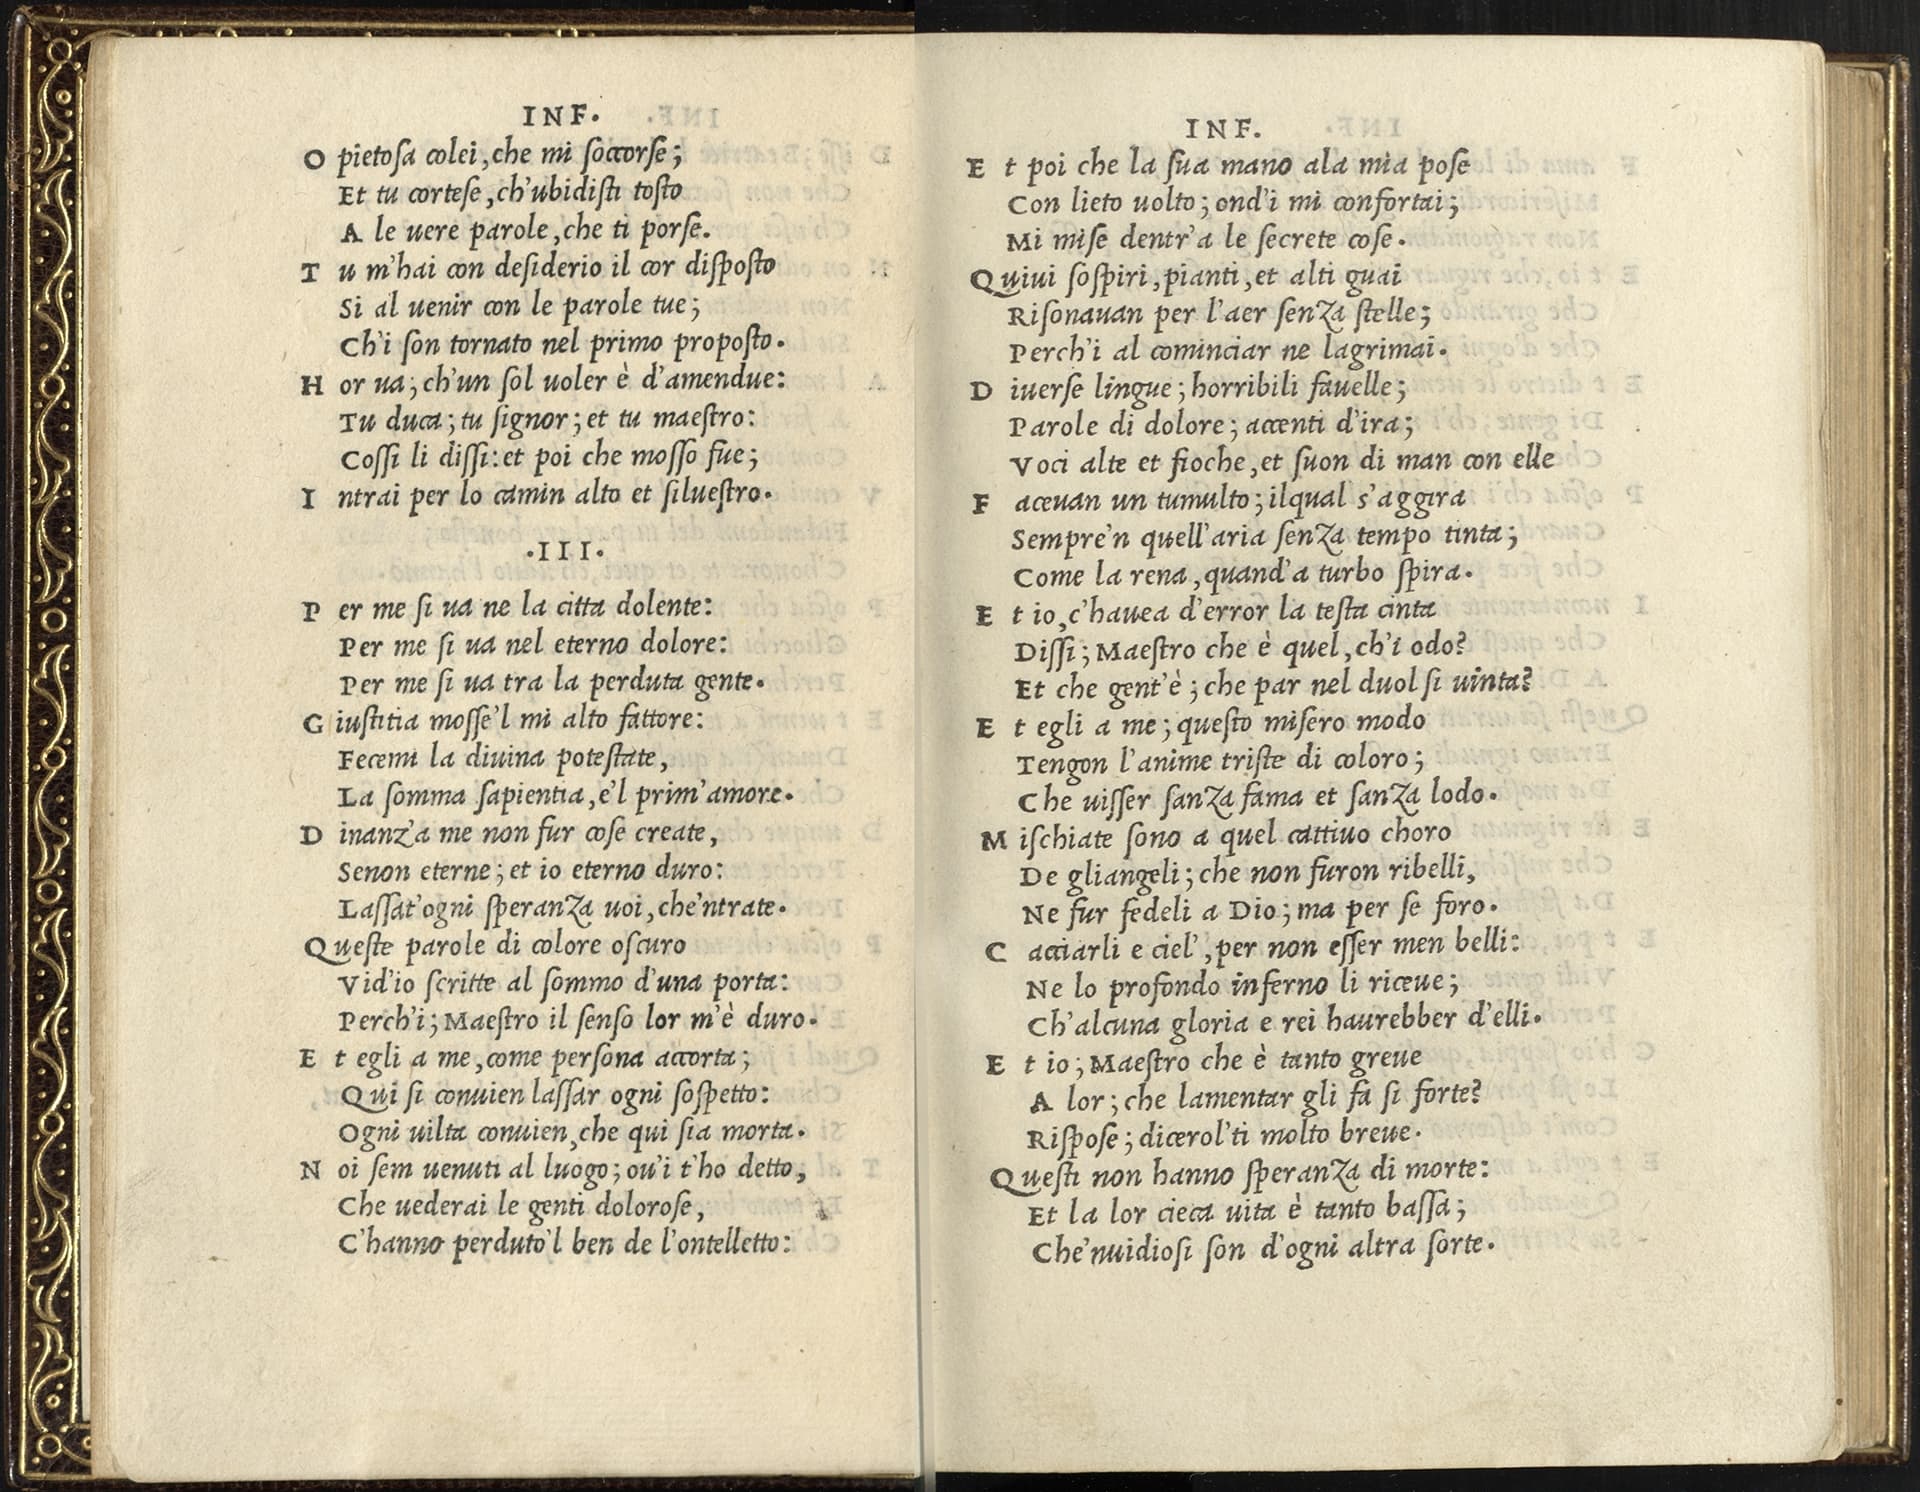 INF.
O pietosa colei, che mi soccorse;
Et tu cortese, ch'ubidisti tosto
A le uere parole, che ti porse.
T u m'hai con desiderio il cor disposto
Si al uenir con le parole tue;
Ch'i son tornato nel primo proposto.
H or ua; ch'un sol uoler è d'amendue:
Tu duca; tu signor; et tu maestro:
Cossi li dissi: et poi che mosso fue;
I ntrai per lo camin alto et siluestro.
.III.
P er me si ua ne la citta dolente:
Per me si ua nel eterno dolore:
Per me si ua tra la perduta gente.
G iustitia mosse'l mi alto fattore:
Fecemi la diuina potestate,
La somma sapientia, e'l prim'amore.
D inanz'a me non fur cose create,
Senon eterne; et io eterno duro:
Lassat'ogni speranza uoi, che'ntrate.
Q ueste parole di colore oscuro
Vid'io scritte al sommo d'una porta:
Perch'i; Maestro il senso lor m'è duro.
E t egli a me, come persona accorta;
Qui si conuien lassar ogni sospetto:
Ogni uilta conuien, che qui sia morta.
N oi sem uenuti al luogo; ou'i t'ho detto,
Che uederai le genti dolorose,
C'hanno perduto'l ben de l'ontelletto:
INF.
E t poi che la sua mano ala mia pose
Con lieto uolto; ond'i mi confortai;
Mi mise dentr'a le secrete cose.
Q uiui sospiri, pianti, et alti guai
Risonauan per l'aer senza stelle;
Perch'i al cominciar ne lagrimai.
D iuerse lingue; horribili fauelle;
Parole di dolore; accenti d'ira;
Voci alte et fioche, et suon di man con elle
F aceuan un tumulto; ilqual s'aggira
Sempre'n quell'aria senza tempo tinta;
Come la rena, quand'a turbo spira.
E t io, c'hauea d'error la testa cinta
Dissi; Maestro che è quel, ch'i odo?
Et che gent'è; che par nel duol si uinta?
E t egli a me; questo misero modo
Tengon l'anime triste di coloro;
Che uisser sanza fama et sanza lodo.
M ischiate sono a quel cattiuo choro
De gliangeli; che non furon ribelli,
Ne fur fedeli a Dio; ma per se foro.
C acciarli e ciel', per non esser men belli:
Ne lo profondo inferno li riceue;
Ch'alcuna gloria e rei haurebber d'elli.
E t io; Maestro che è tanto greue
A lor; che lamentar gli fa si forte?
Rispose; dicerol'ti molto breue.
Q uesti non hanno speranza di morte:
Et la lor cieca uita è tanto bassa;
Che'nuidiosi son d'ogni altra sorte.